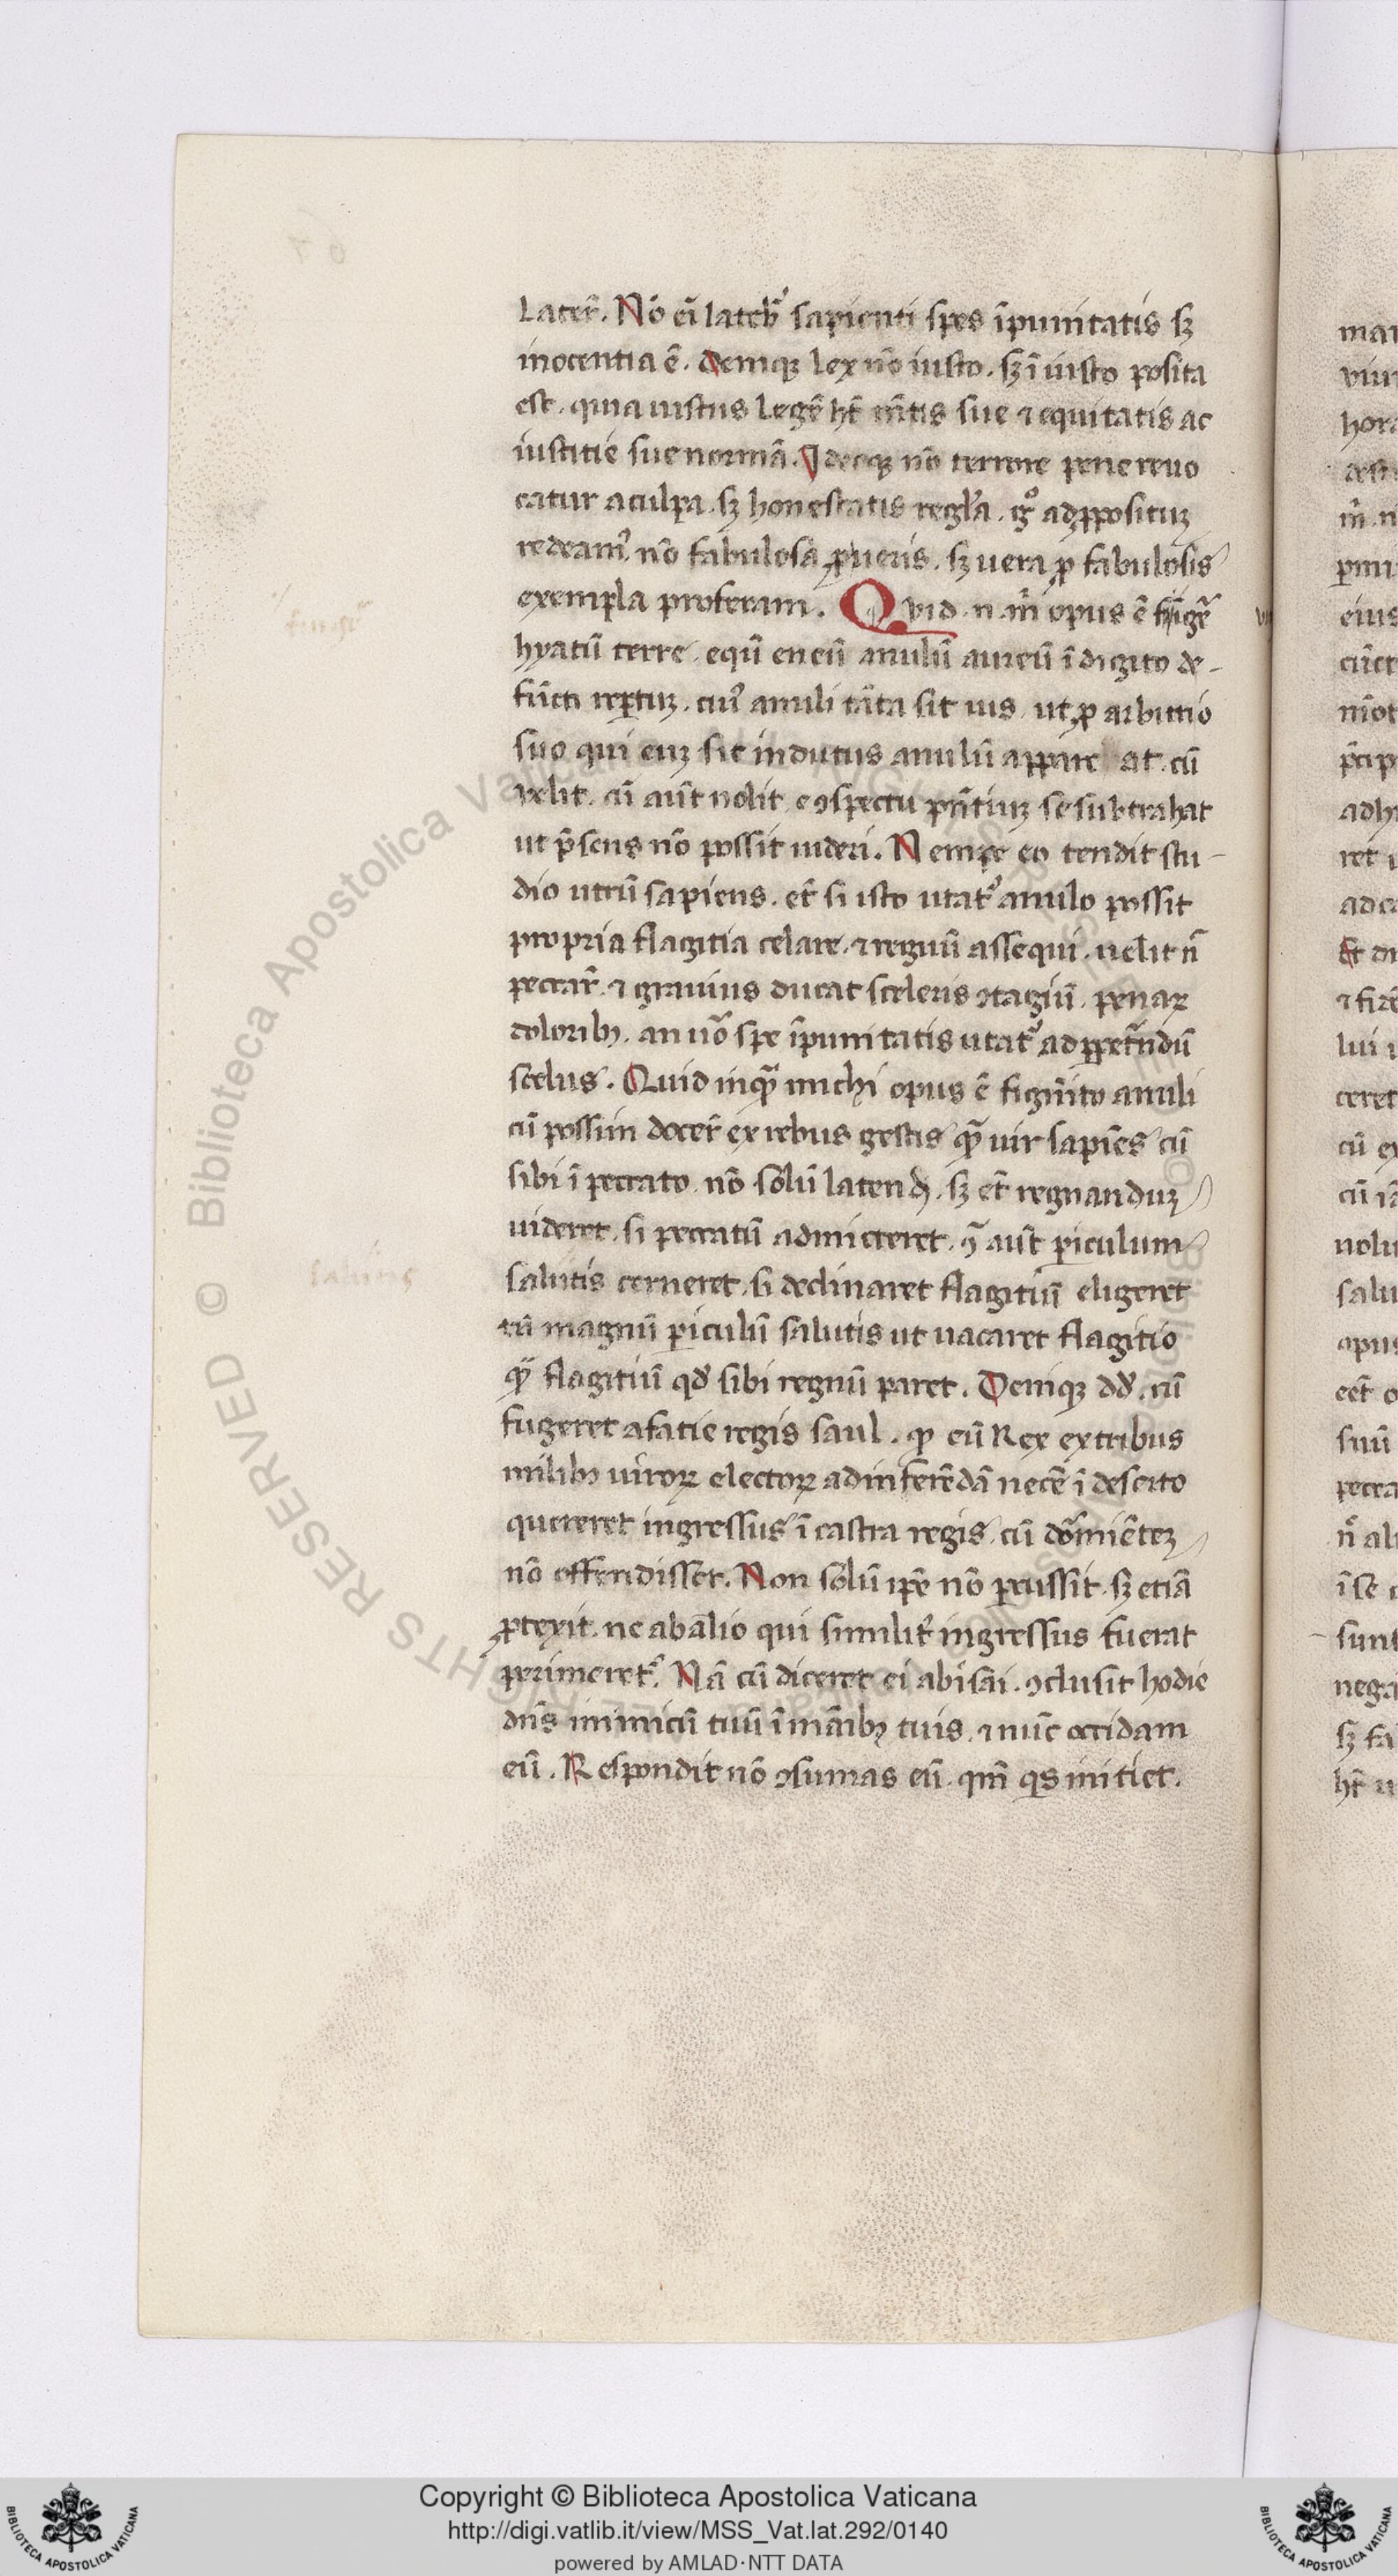 Later̃. Nō eī lateb̾ sapienti spes īpunitatis sꝫ
inocentia ē. demqꝫ lex nō iusto. sꝫ īiusto posita
est. quia iustus legē ht̄ mētis sue ⁊ equitatis ac
iustitie sue normā. Ideoqꝫ nō terrore pene reuo
catur a culpa. sꝫ honestatis regl̾a. gͦ ad ꝓposituꝫ
redeam᷒ nō fabulosa ꝓ ueris. sꝫ uera ꝓ fabulosis
exempla proferam. Quid .n. m̄ opus ē
hyatū terre. equū eneū anulū aureū ī digito de-
fūcti reꝑtuꝫ. cui᷒ anuli tāta sit uis. ut ꝓ arbitrio
suo qui euꝫ sit indutus anulū appare at. cū
velit. cū aūt nolit. e ꝯspectu pn̄tiuꝫ se subtrahat
ut p̄sens nō possit uideri. Nempe eo tendit stu-
dio utrū sapiens. et̄ si isto utat᷒ anulo possit
propria flagitia celare. ⁊ regnū assequi. uelit n̄
peccar̄. ⁊ grauius ducat sceleris ꝯtagiū. penaꝝ
doloribꝫ. an uo᷒ spe īpunitatis utat᷒ ad ꝑpetrādū
scelus. Quid inquā michi opus ē figmēto anuli
cū possim docer̄ ex rebus gestis quā uir sapiēs cū
sibi ī peccato. nō solū latendū. sꝫ et̄ regnanduꝫ
uideret. si peccatū admicteret. ꝯ̄ aūt ꝑiculum
salutis cerneret. si declinaret flagitiū eligeret
tn̄ magnū ꝑiculū salutis ut uacaret flagitio
quā flagitiū qd̄ sibi regnū pararet. Deniqꝫ dd̄. cū
fugeret a facie regis saul. ꝙ eū Rex ex tribus
milibꝫ uiroꝝ electoꝝ ad inferēdā necē ī deserto
quereret ingressus ī castra regis. cū dormiēteꝫ
nō offendisset. Non solū ip̄e nō ꝑcussit. sꝫ etiā
ꝓtexit. ne ab alio qui similit̄ ingressus fuerat
perimeret᷒. Nā cū diceret ei abisāi. ꝯclusit hodie
dn̄s inimicū tuū ī mānibꝫ tuis. ⁊ nūc occidam
eū. Respondit nō ꝯsumas eū. qm̄ qs initiet.
salutis
Copyright © Biblioteca Apostolica Vaticana
http://digi.vatlib.it/view/MSS_Vat.lat.292/0140
powered by AMLAD·NTT DATA